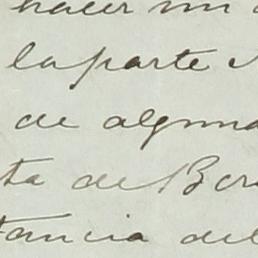 hacer un
la parte
de alguna
ta de Ber
tancia del